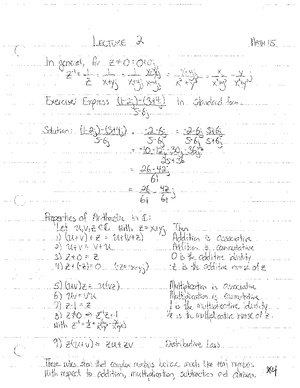 LECTURE 2
MATH 115
In general, for z≠0=0+0j,
z⁻¹ = 1/z = 1/(x+yj) = 1/(x+yj) (x-yj)/(x-yj) = (x-yj)/(x²+y²) = x/(x²+y²) - y/(x²+y²) j
Exercise: Express ((1-2j)-(3+4j))/(5-6j) in standard form.
Solution: ((1-2j)-(3+4j))/(5-6j) = (-2-6j)/(5-6j) = (-2-6j)/(5-6j) (5+6j)/(5+6j)
= (-10-12j-30j-36j²)/(25+36)
= (26-42j)/61
= 26/61 - 42/61 j
Properties of Arithmetic in C:
Let u,v,z∈C with z=x+yj. Then
1) (u+v)+z = u+(v+z) Addition is associative
2) u+v = v+u Addition is commutative
3) z+0 = z 0 is the additive identity
4) z+(-z)=0 (-z=-x-yj) -z is the additive inverse of z
5) (uv)z = u(vz) Multiplication is associative
6) uv=vu Multiplication is commutative
7) z·1 = z 1 is the multiplicative identity
8) z≠0 ⇒ z⁻¹z=1 z⁻¹ is the multiplicative inverse of z.
9) z(u+v) = zu+zv Distributive Law.
These rules show that complex numbers behave much like real numbers
with respect to addition, multiplication, subtraction and division.